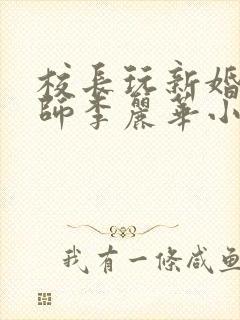 校長玩新婚
師李麗華小
我有一條咸鱼